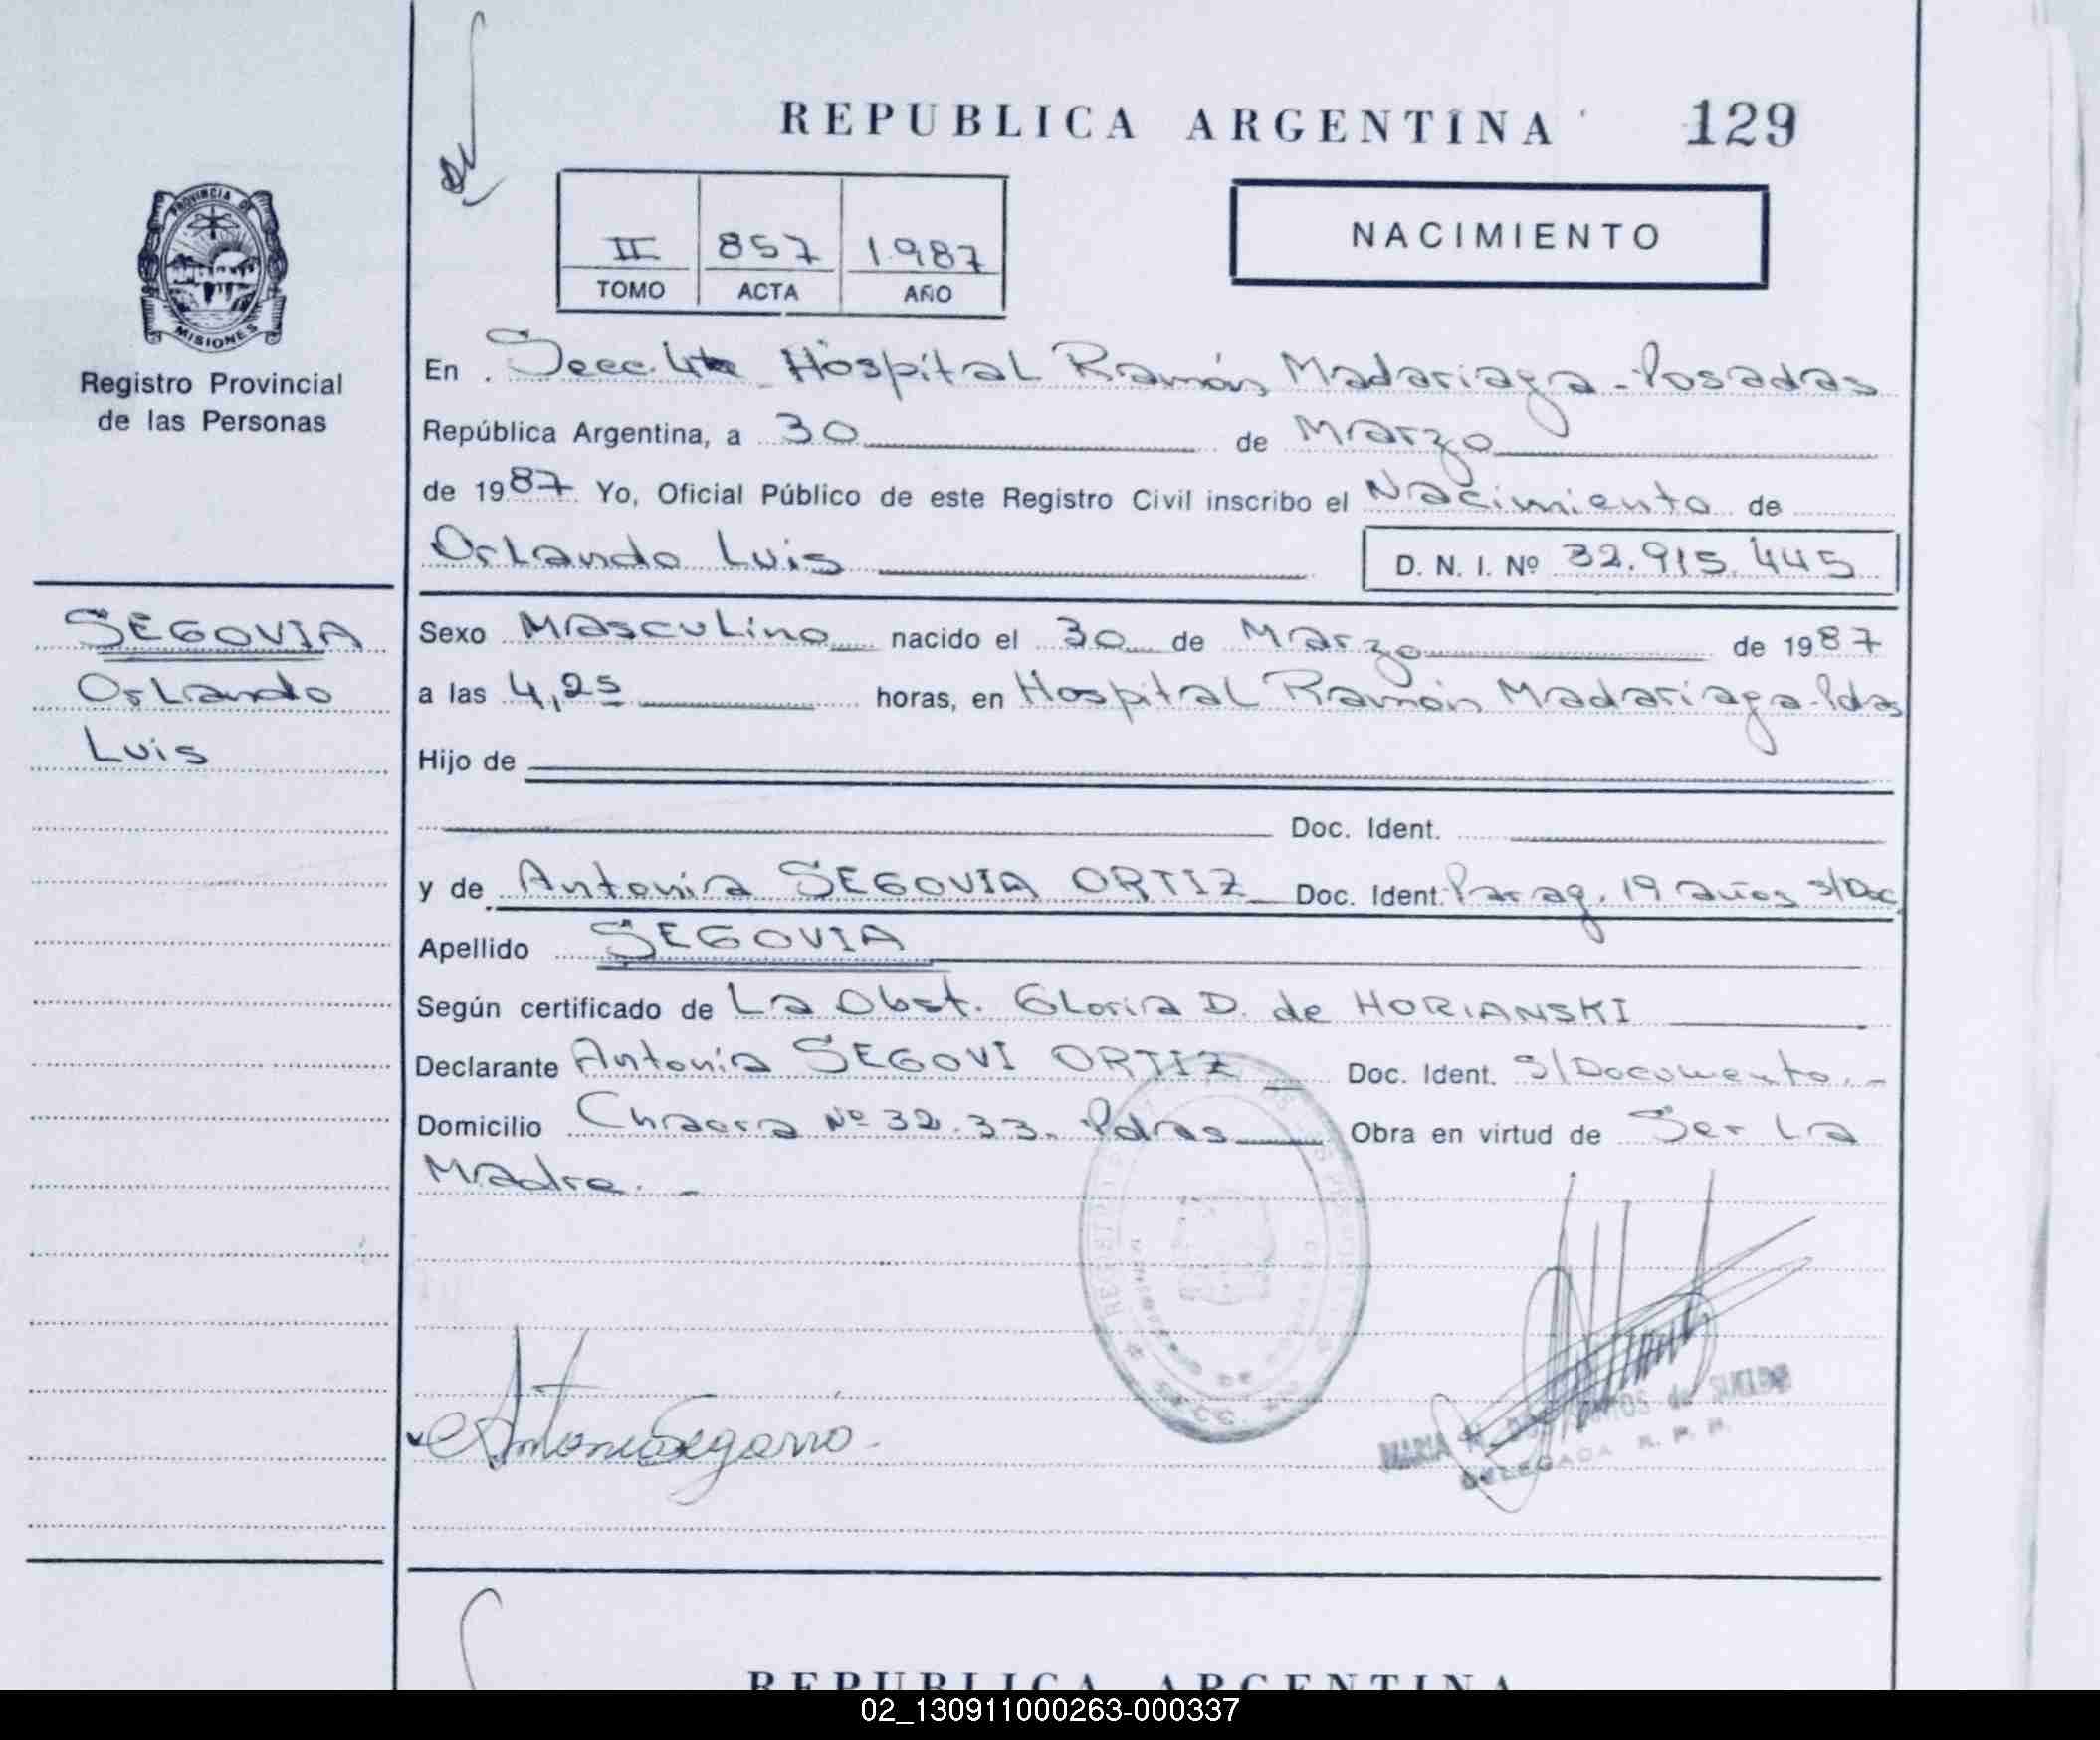 REPUBLICA ARGENTINA 129
II 857 1987
TOMO ACTA AÑO
NACIMIENTO
PROVINCIA DE
MISIONES
Registro Provincial
de las Personas
En Secc. 4ta Hospital Ramón Madariaga - Posadas
República Argentina, a 30 de Marzo
de 1987 Yo, Oficial Público de este Registro Civil inscribo el Nacimiento de
Orlando Luis D. N. I. Nº 32.915.445
SEGOVIA
Orlando
Luis
Sexo Masculino nacido el 30 de Marzo de 1987
a las 4,25 horas, en Hospital Ramón Madariaga - Pdas
Hijo de
Doc. Ident.
y de Antonia SEGOVIA ORTIZ Doc. Ident. Parag. 19 años s/Doc.
Apellido SEGOVIA
Según certificado de La Obst. Gloria D. de HORIANSKI
Declarante Antonia SEGOVI ORTIZ Doc. Ident. S/Documento.-
Domicilio Chacra Nº 32-33. Pdas Obra en virtud de Ser La
Madre.-
MARIA de
DELEGADA R. P. P.
REPUBLICA ARGENTINA
02_130911000263-000337